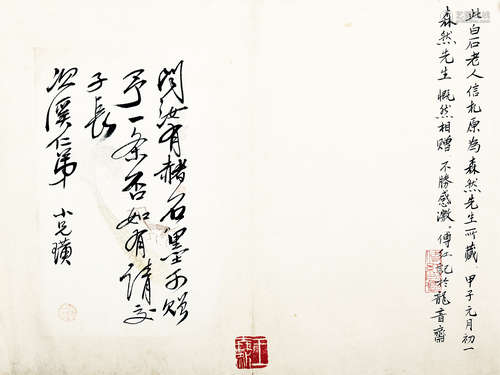 此白石老人信札原為森然先生所藏、甲子元月初一
森然先生慨然相贈 不勝感激、傅 記於龍音齋
問汝有赭石墨可贈
予一条否如有請交
子長
次溪仁弟 小兄璜